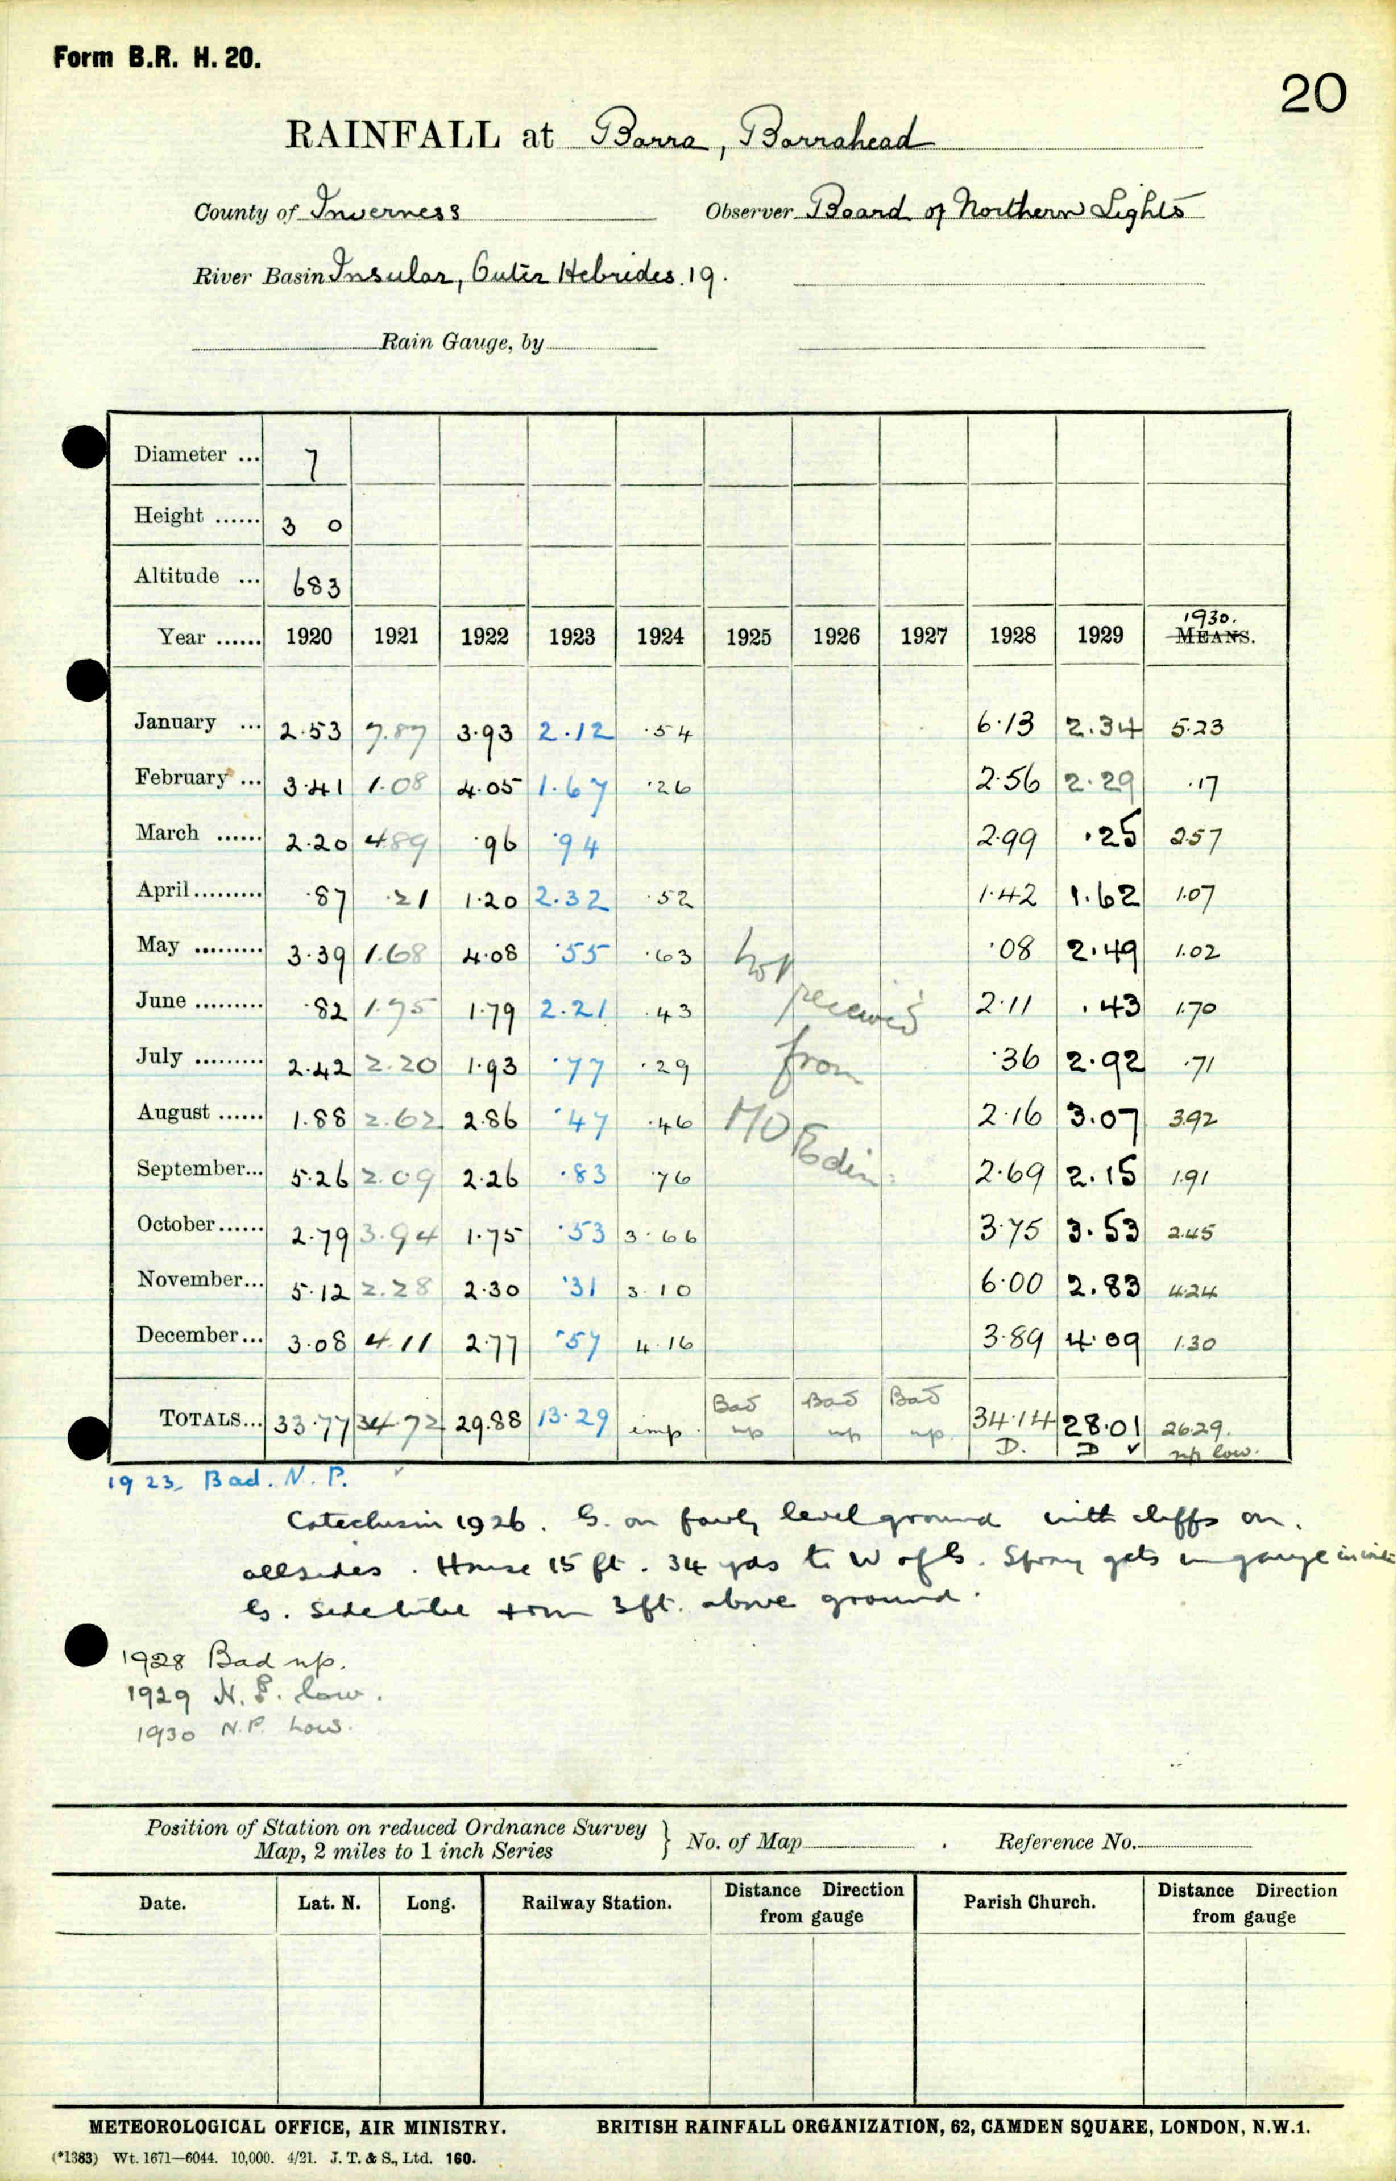 Form B.R. H. 20.
20
RAINFALL at Barra, Barrahead
County of Inverness Observer Board of Northern Lights
River Basin Insular, Outer Hebrides. 19.
Rain Gauge, by
Diameter ... 7
Height ...... 3 0
Altitude ... 683
1930.
Year ...... 1920 1921 1922 1923 1924 1925 1926 1927 1928 1929 MEANS.
January ... 2.53 7.87 3.93 2.12 .54 6.13 2.34 5.23
February ... 3.41 1.08 4.05 1.67 .26 2.56 2.29 .17
March ...... 2.20 4.89 .96 .94 2.99 .25 2.57
April ......... .87 .21 1.20 2.32 .52 1.42 1.62 1.07
May ......... 3.39 1.68 4.08 .55 .63 .08 2.49 1.02
June ......... .82 1.75 1.79 2.21 .43 2.11 .43 1.70
July ......... 2.42 2.20 1.93 .77 .29 .36 2.92 .71
August ...... 1.88 2.62 2.86 .47 .46 2.16 3.07 3.92
September... 5.26 2.09 2.26 .83 .76 2.69 2.15 1.91
October...... 2.79 3.94 1.75 .53 3.66 3.75 3.53 2.45
November... 5.12 2.28 2.30 .31 3.10 6.00 2.83 4.24
December... 3.08 4.11 2.77 .57 4.16 3.89 4.09 1.30
not received
from
MO Edin.
TOTALS... 33.77 34.72 29.88 13.29 imp. Bad np Bad np Bad np. 34.14 28.01 26.29.
D. D ✓ np low.
1923, Bad. N. P.
1926. G. on fairly level ground with cliffs on
all sides. House 15 ft. 34 yds to W of G. Spray gets in gauge in
G. 3ft. above ground.
1928 Bad np.
1929 N.P. low.
1930 N.P. Low.
Position of Station on reduced Ordnance Survey
Map, 2 miles to 1 inch Series } No. of Map . Reference No.
Date. Lat. N. Long. Railway Station. Distance from gauge Direction Parish Church. Distance from gauge Direction
METEOROLOGICAL OFFICE, AIR MINISTRY. BRITISH RAINFALL ORGANIZATION, 62, CAMDEN SQUARE, LONDON, N.W.1.
(*1383) Wt. 1671—6044. 10,000. 4/21. J. T. & S., Ltd. 160.